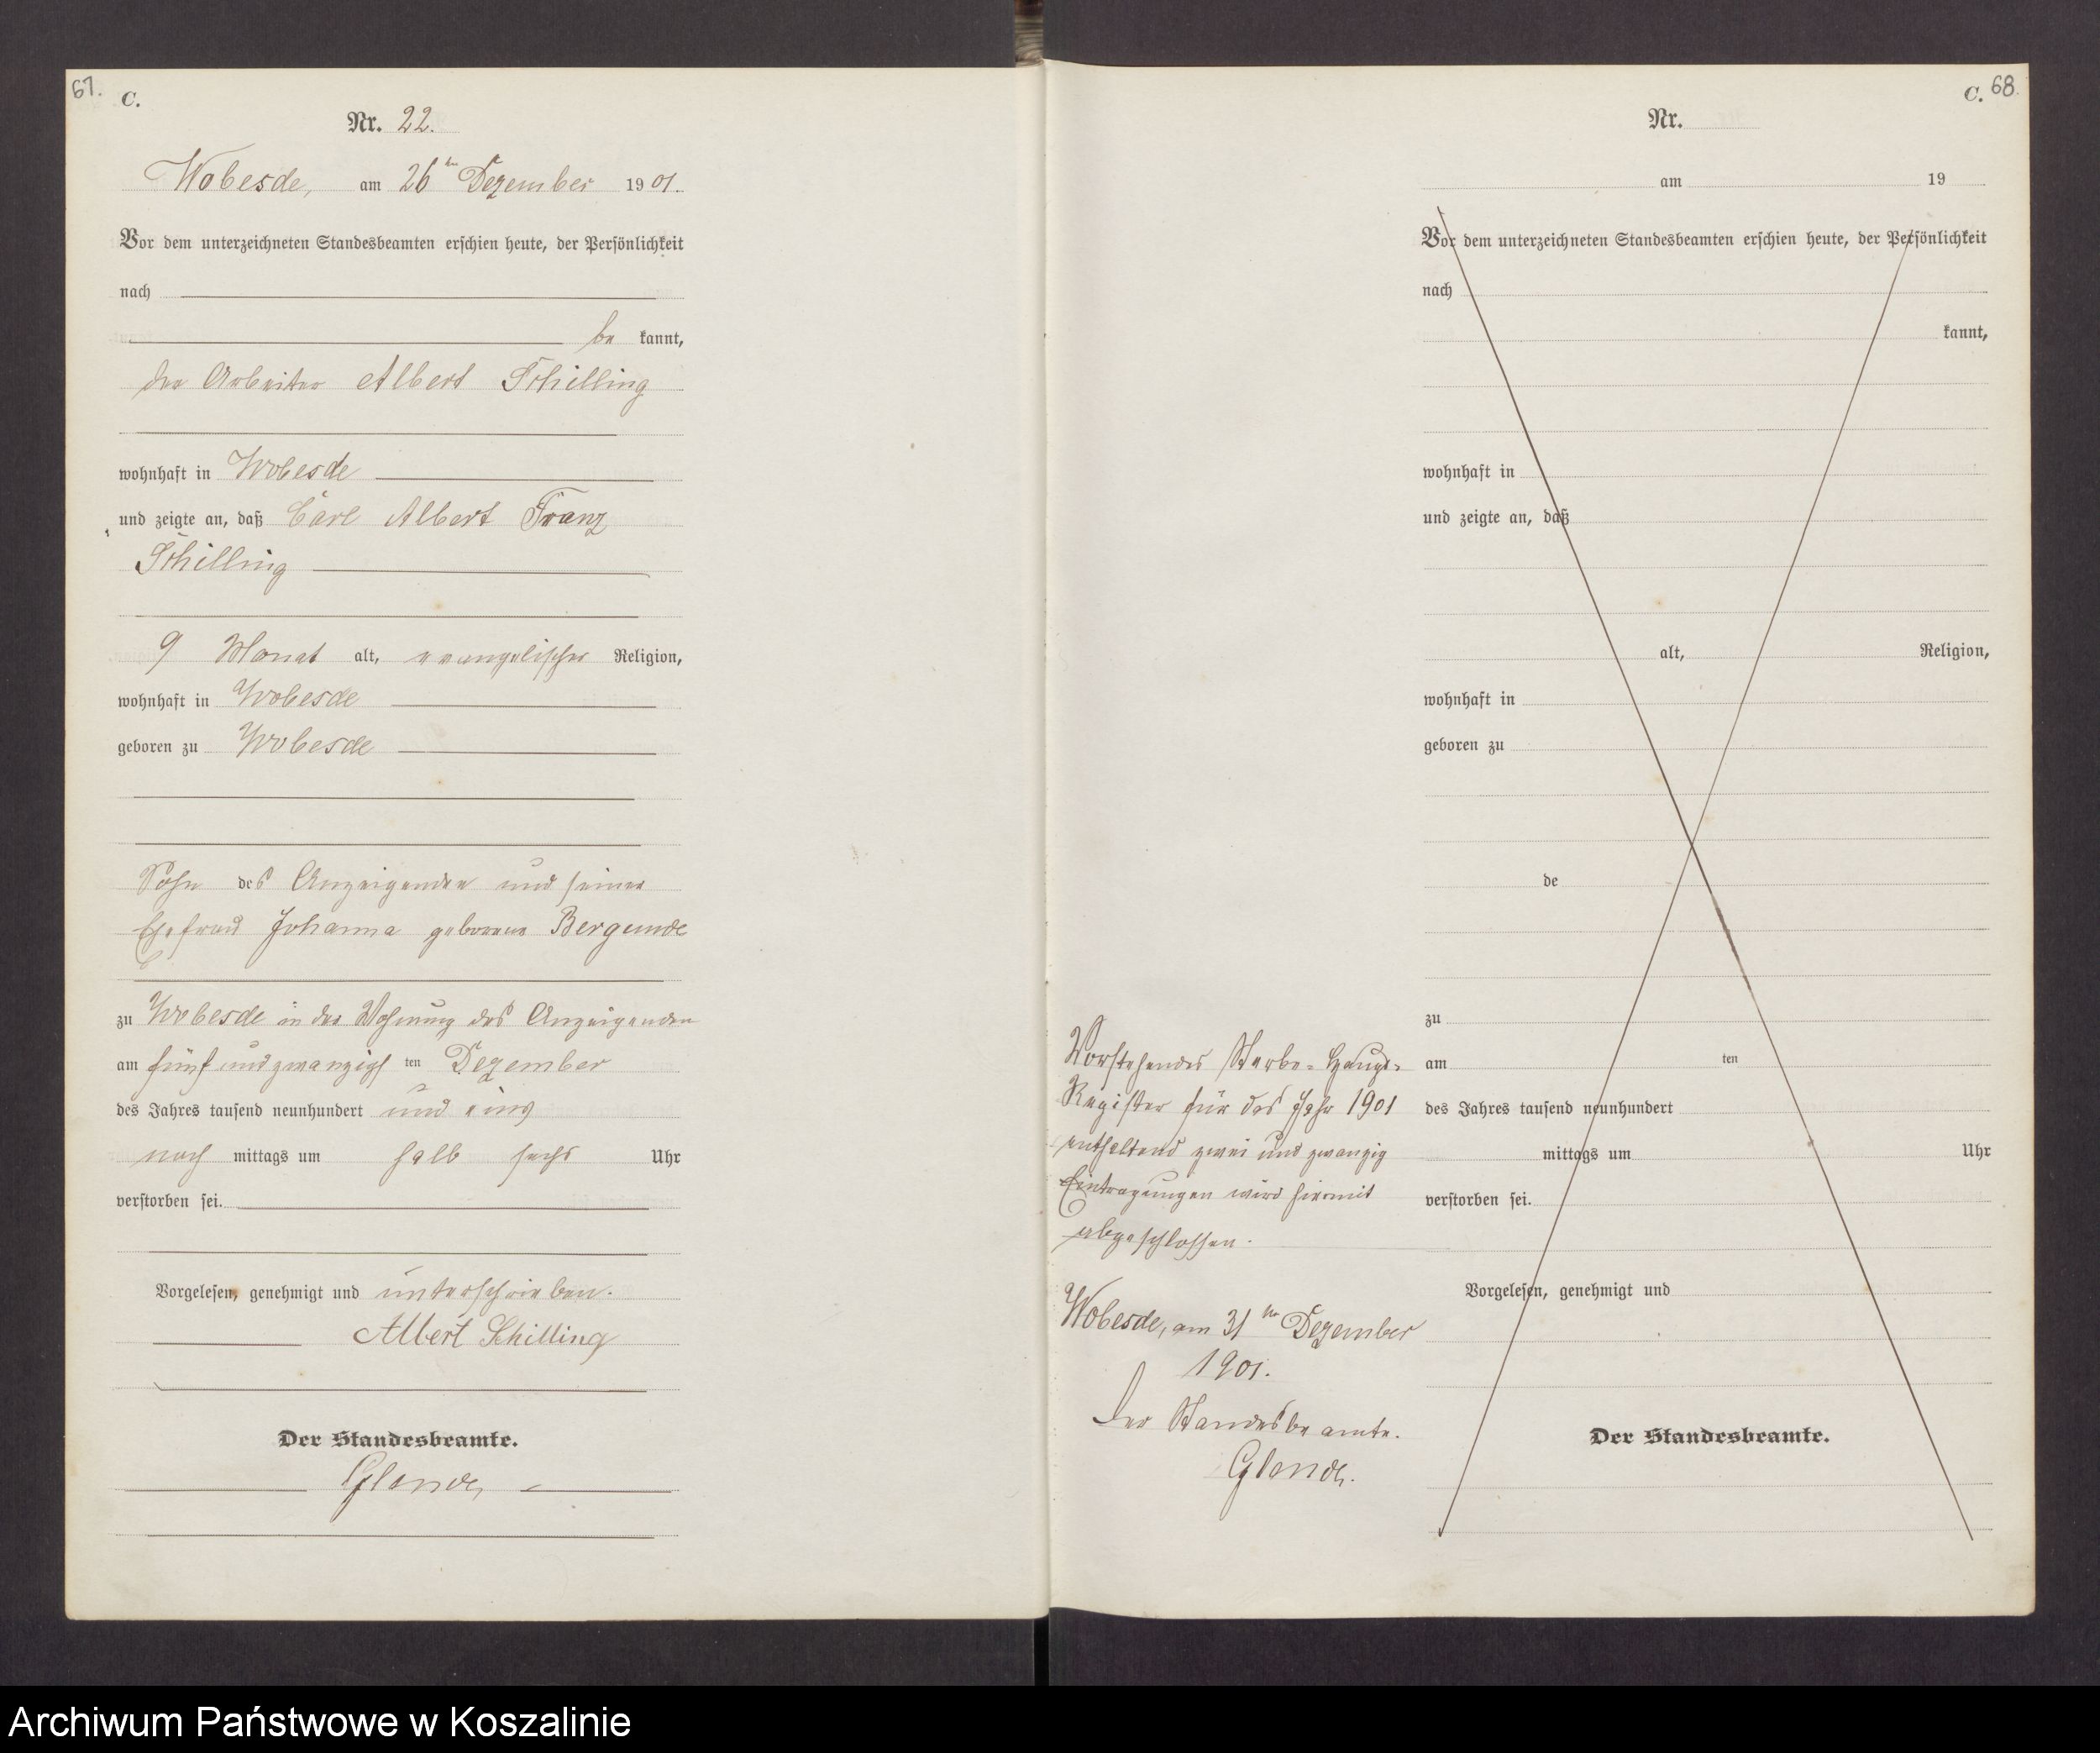 67.
C.
Nr. 22.
Wobesde, am 26ten Dezember 1901.
Vor dem unterzeichneten Standesbeamten erschien heute, der Persönlichkeit
nach
be kannt,
der Arbeiter Albert Schilling
wohnhaft in Wobesde
und zeigte an, daß Carl Albert Franz
Schilling
9 Monat alt, evangelischer Religion,
wohnhaft in Wobesde
geboren zu Wobesde
Sohn des Anzeigenden und seiner
Ehefrau Johanna geborene Bergunde
zu Wobesde in der Wohnung des Anzeigenden
am fünfundzwanzigsten Dezember
des Jahres tausend neunhundert und eins
nach mittags um halb sechs Uhr
verstorben sei.
Vorgelesen, genehmigt und unterschrieben.
Albert Schilling
Der Standesbeamte.
Glende
C. 68.
Nr.
am 19
Vor dem unterzeichneten Standesbeamten erschien heute, der Persönlichkeit
nach
kannt,
wohnhaft in
und zeigte an, daß
alt, Religion,
wohnhaft in
geboren zu
de
zu
am ten
des Jahres tausend neunhundert
mittags um Uhr
verstorben sei.
Vorgelesen, genehmigt und
Der Standesbeamte.
Vorstehendes Sterbe-Haupt-
Register für das Jahr 1901
enthaltend zwei und zwanzig
Eintragungen wird hiermit
abgeschlossen.
Wobesde, am 31ten Dezember
1901.
Der Standesbeamte.
Glende.
Archiwum Państwowe w Koszalinie